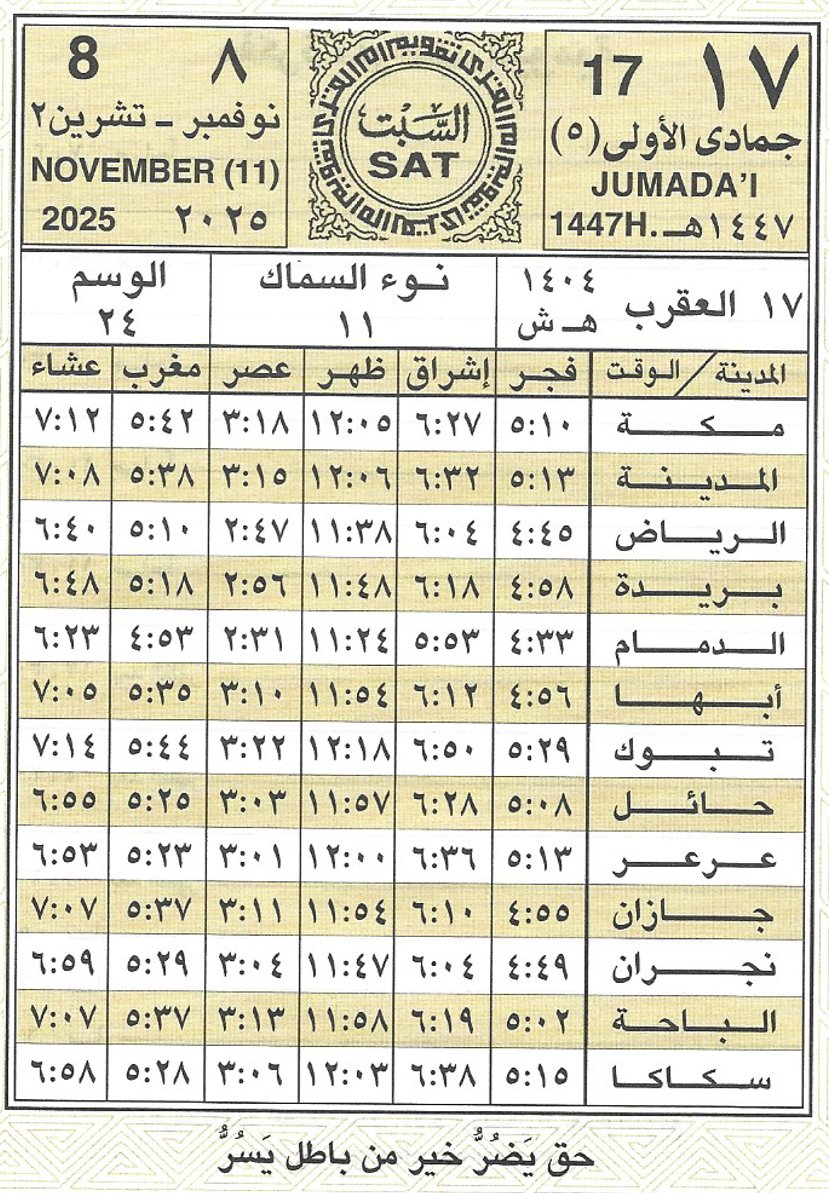 ١٧ 17
جمادى الأولى (٥)
JUMADA'I
1447H. ١٤٤٧هـ
السَّبْت
SAT
8 ٨
نوفمبر ـ تشرين٢
NOVEMBER (11)
2025 ٢٠٢٥
١٧ العقرب ١٤٠٤ هـ ش
نوء السماك
١١
الوسم
٢٤
المدينة / الوقت فجر إشراق ظهر عصر مغرب عشاء
مكة ٥:١٠ ٦:٢٧ ١٢:٠٥ ٣:١٨ ٥:٤٢ ٧:١٢
المدينة ٥:١٣ ٦:٣٢ ١٢:٠٦ ٣:١٥ ٥:٣٨ ٧:٠٨
الرياض ٤:٤٥ ٦:٠٤ ١١:٣٨ ٢:٤٧ ٥:١٠ ٦:٤٠
بريدة ٤:٥٨ ٦:١٨ ١١:٤٨ ٢:٥٦ ٥:١٨ ٦:٤٨
الدمام ٤:٣٣ ٥:٥٣ ١١:٢٤ ٢:٣١ ٤:٥٣ ٦:٢٣
أبها ٤:٥٦ ٦:١٢ ١١:٥٤ ٣:١٠ ٥:٣٥ ٧:٠٥
تبوك ٥:٢٩ ٦:٥٠ ١٢:١٨ ٣:٢٢ ٥:٤٤ ٧:١٤
حائل ٥:٠٨ ٦:٢٨ ١١:٥٧ ٣:٠٣ ٥:٢٥ ٦:٥٥
عرعر ٥:١٣ ٦:٣٦ ١٢:٠٠ ٣:٠١ ٥:٢٣ ٦:٥٣
جازان ٤:٥٥ ٦:١٠ ١١:٥٤ ٣:١١ ٥:٣٧ ٧:٠٧
نجران ٤:٤٩ ٦:٠٤ ١١:٤٧ ٣:٠٤ ٥:٢٩ ٦:٥٩
الباحة ٥:٠٢ ٦:١٩ ١١:٥٨ ٣:١٣ ٥:٣٧ ٧:٠٧
سكاكا ٥:١٥ ٦:٣٨ ١٢:٠٣ ٣:٠٦ ٥:٢٨ ٦:٥٨
حق يَضُرُّ خير من باطل يَسُرُّ